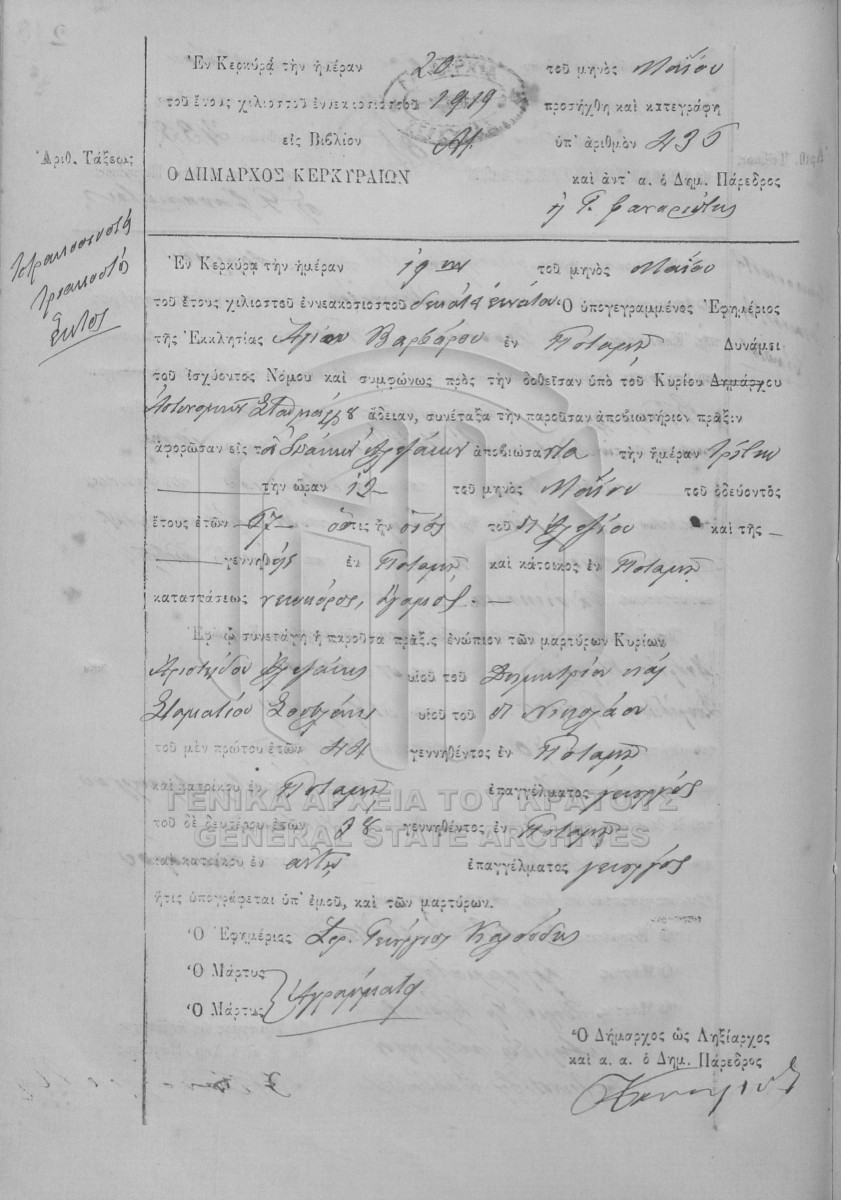 Ἐν Κερκύρᾳ τὴν ἡμέραν 20 τοῦ μηνὸς Μαΐου
τοῦ ἔτους χιλιοστοῦ ἐννεακοσιοστοῦ 1919 προσήχθη καὶ κατεγράφη
εἰς Βιβλίον ὑπ' ἀριθμὸν 436
Ἀριθ. Τάξεως
Ὁ ΔΗΜΑΡΧΟΣ ΚΕΡΚΥΡΑΙΩΝ καὶ ἀντ' α. ὁ Δημ. Πάρεδρος
Τετρακοσιοστὴ
τριακοστὴ
ἕκτος
Ἐν Κερκύρᾳ τὴν ἡμέραν 19 τοῦ μηνὸς Μαΐου
τοῦ ἔτους χιλιοστοῦ ἐννεακοσιοστοῦ δεκάτου ἐννάτου Ὁ ὑπογεγραμμένος Ἐφημέριος
τῆς Ἐκκλησίας Ἁγίου Βαρβάρου ἐν Ποταμῷ Δυνάμει
τοῦ ἰσχύοντος Νόμου καὶ συμφώνως πρὸς τὴν δοθεῖσαν ὑπὸ τοῦ Κυρίου Δημάρχου
Ἀστυνομικοῦ Σταθμάρχου ἄδειαν, συνέταξα τὴν παροῦσαν ἀποβιωτήριον πρᾶξιν
ἀφορῶσαν εἰς τὸν ἀποβιώσαντα τὴν ἡμέραν τρίτην
τὴν ὥραν 12 τοῦ μηνὸς Μαΐου τοῦ ὁδεύοντος
ἔτους ἐτῶν 67 ὅστις ἦν υἱὸς τοῦ καὶ τῆς
γεννηθεὶς ἐν Ποταμῷ καὶ κάτοικος ἐν Ποταμῷ
καταστάσεως ἄγαμος
Ἐφ' ᾧ συνετάγη ἡ παροῦσα πρᾶξις ἐνώπιον τῶν μαρτύρων Κυρίων
Ἀριστείδου υἱοῦ τοῦ Δημητρίου καὶ
Σταματίου υἱοῦ τοῦ π Νικολάου
τοῦ μὲν πρώτου ἐτῶν 44 γεννηθέντος ἐν Ποταμῷ
καὶ κατοίκου ἐν Ποταμῷ ἐπαγγέλματος γεωργός
ΓΕΝΙΚΑ ΑΡΧΕΙΑ ΤΟΥ ΚΡΑΤΟΥΣ
τοῦ δὲ δευτέρου ἐτῶν 38 γεννηθέντος ἐν Ποταμῷ
GENERAL STATE ARCHIVES
καὶ κατοίκου ἐν ἐπαγγέλματος γεωργός
ἥτις ὑπογράφεται ὑπ' ἐμοῦ, καὶ τῶν μαρτύρων.
Ὁ Ἐφημέριος Γεώργιος
Ὁ Μάρτυς
Ἀγράμματοι
Ὁ Μάρτυς
Ὁ Δήμαρχος ὡς Ληξίαρχος
καὶ α. α. ὁ Δημ. Πάρεδρος